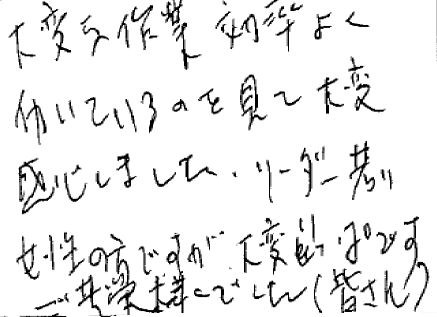 大変な作業 効率よく
働いているのを見て大変
感心しました. リーダー
女性の方ですが 大変 です
でした(皆さん)